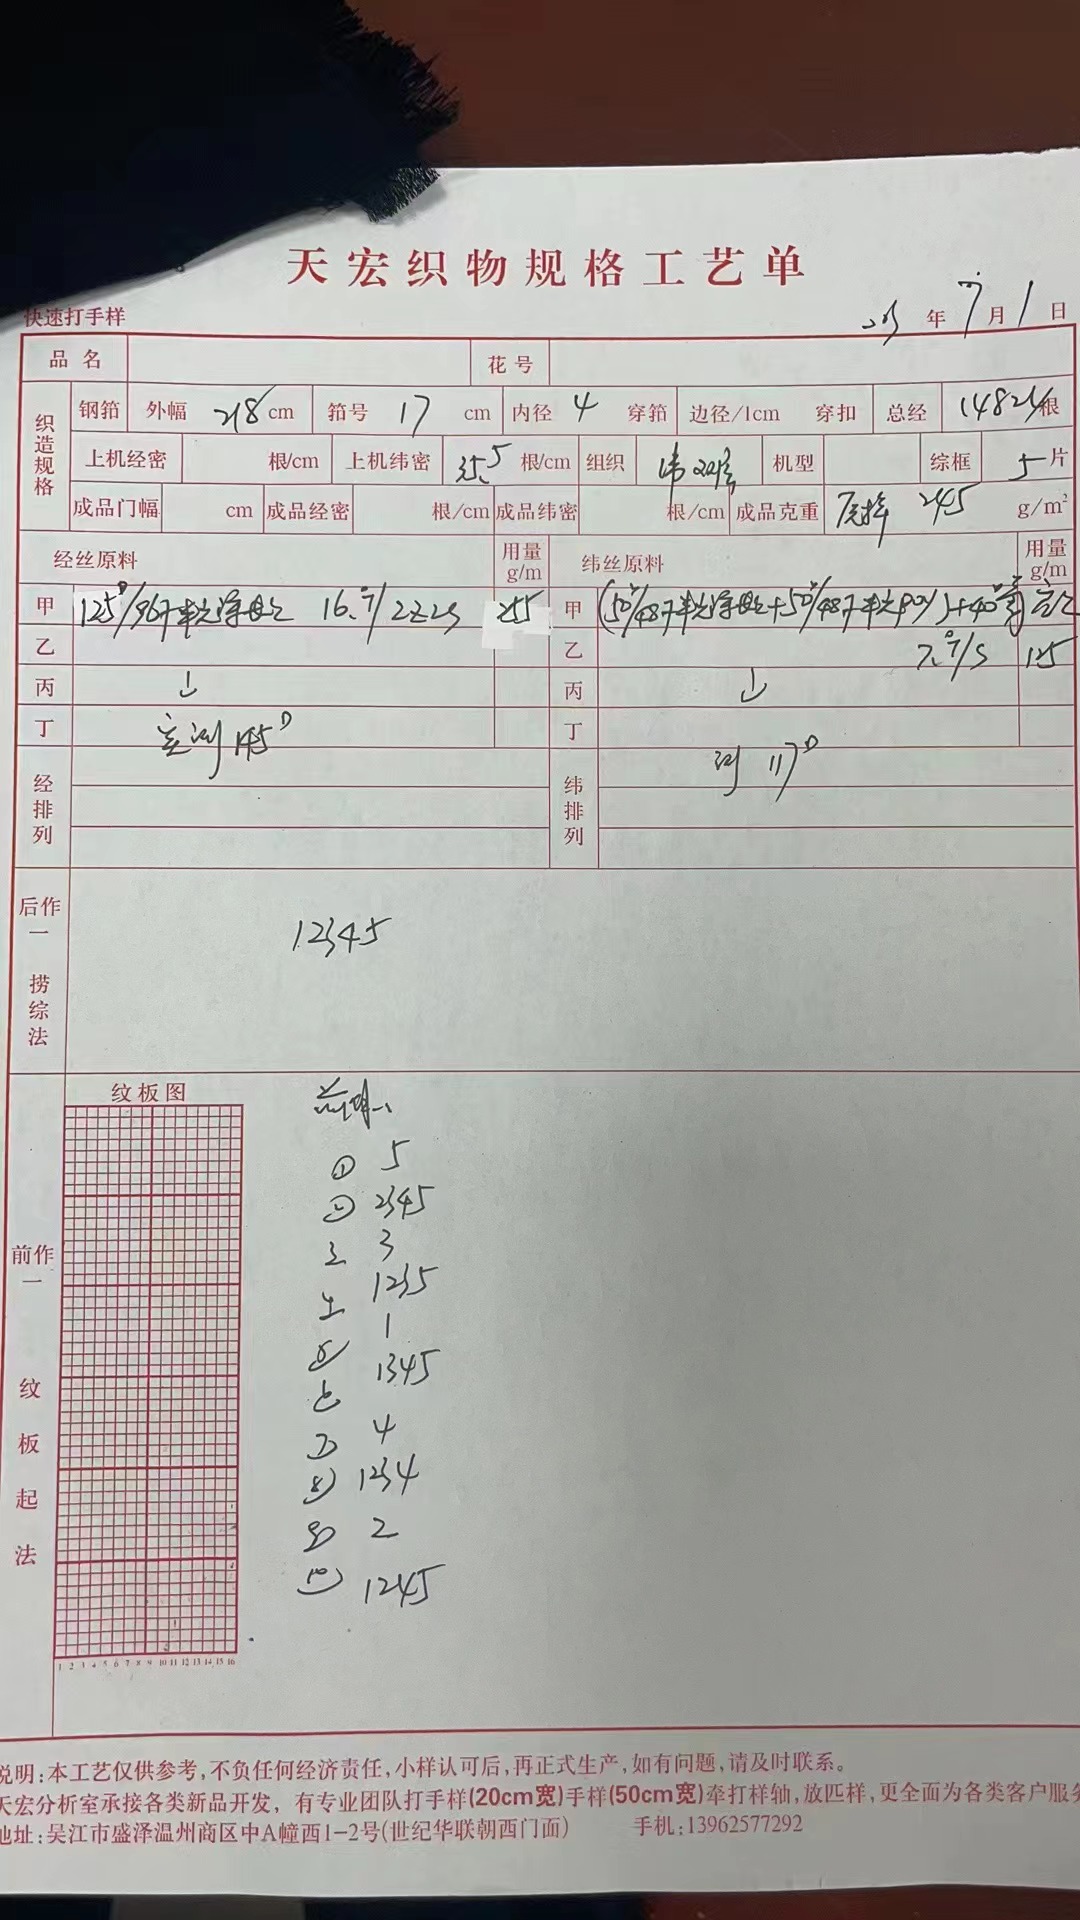 天宏织物规格工艺单
快速打手样 年 7 月 1 日
品名 花号
织造规格 钢筘 外幅 218 cm 筘号 17 cm 内径 4 穿筘 边径/1cm 穿扣 总经 14824 根
上机经密 根/cm 上机纬密 35.5 根/cm 组织 纬双层 机型 综框 5 片
成品门幅 cm 成品经密 根/cm 成品纬密 根/cm 成品克重 245 g/m²
经丝原料 用量 g/m 纬丝原料 用量 g/m
甲 125D/96F半光涤 16.T/2Z2S 255 甲 (50D/48F半光涤+50D/48F半光 )+40D
乙 乙 7.T/S 125
丙 ↓ 丙 ↓
丁 实测 145D 丁
测 117D
经排列 纬排列
后作一捞综法 12345
前作一纹板起法 纹板图
① 5
② 2345
三 3
1235
1
1345
4
⑧ 1234
2
1245
1 2 3 4 5 6 7 8 9 10 11 12 13 14 15 16
说明:本工艺仅供参考,不负任何经济责任,小样认可后,再正式生产,如有问题,请及时联系。
天宏分析室承接各类新品开发，有专业团队打手样(20cm宽)手样(50cm宽)牵打样轴,放匹样,更全面为各类客户服务
地址:吴江市盛泽温州商区中A幢西1-2号(世纪华联朝西门面) 手机:13962577292